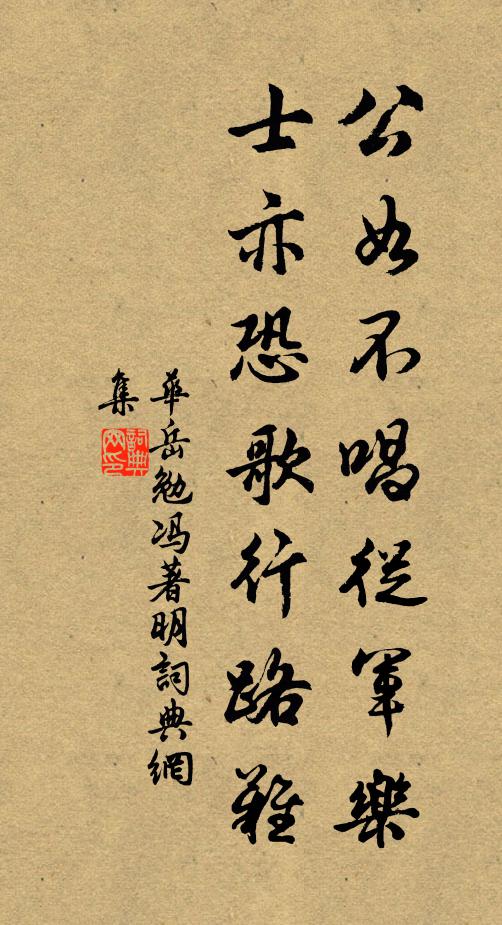 公如不唱從軍樂
士亦恐歌行路難
華岳勉馮著明詞典網
集
詞典
网印